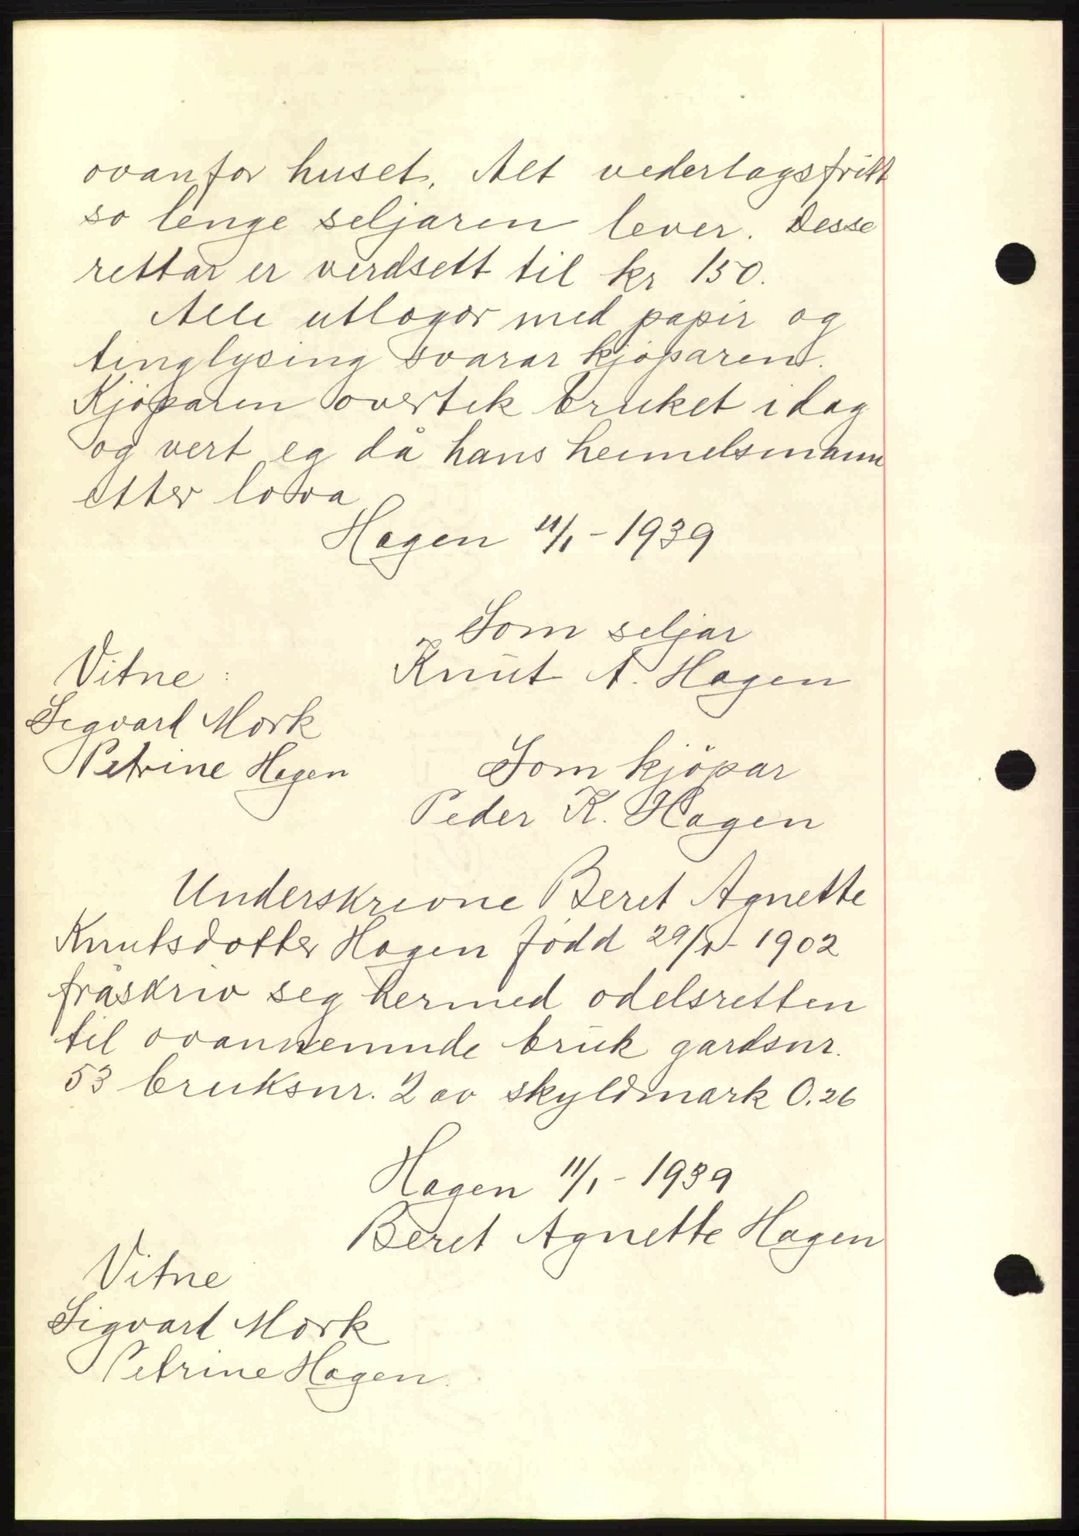 ovanfor huset. Alt vederlagsfritt
so lenge seljaren lever. Desse
rettar er verdsett til kr 150.
Alle utlogor med papir og
tinglysing svarar kjøparen.
Kjøparen overtek bruket idag
og vert eg då hans heimelsmann
etter lova
Hagen 11/1 - 1939
Som seljar
Knut A. Hagen
Vitne:
Sigvart Mork
Petrine Hagen
Som kjöpar
Peder K. Hagen
Underskrivne Beret Agnette
Knutsdotter Hagen född 29/ - 1902
fråskriv seg hermed odelsretten
til ovannemnde bruk gardsnr.
53 bruksnr. 2 av skyldmark 0.26
Hagen 11/1 - 1939
Beret Agnette Hagen
Vitne
Sigvart Mork
Petrine Hagen.